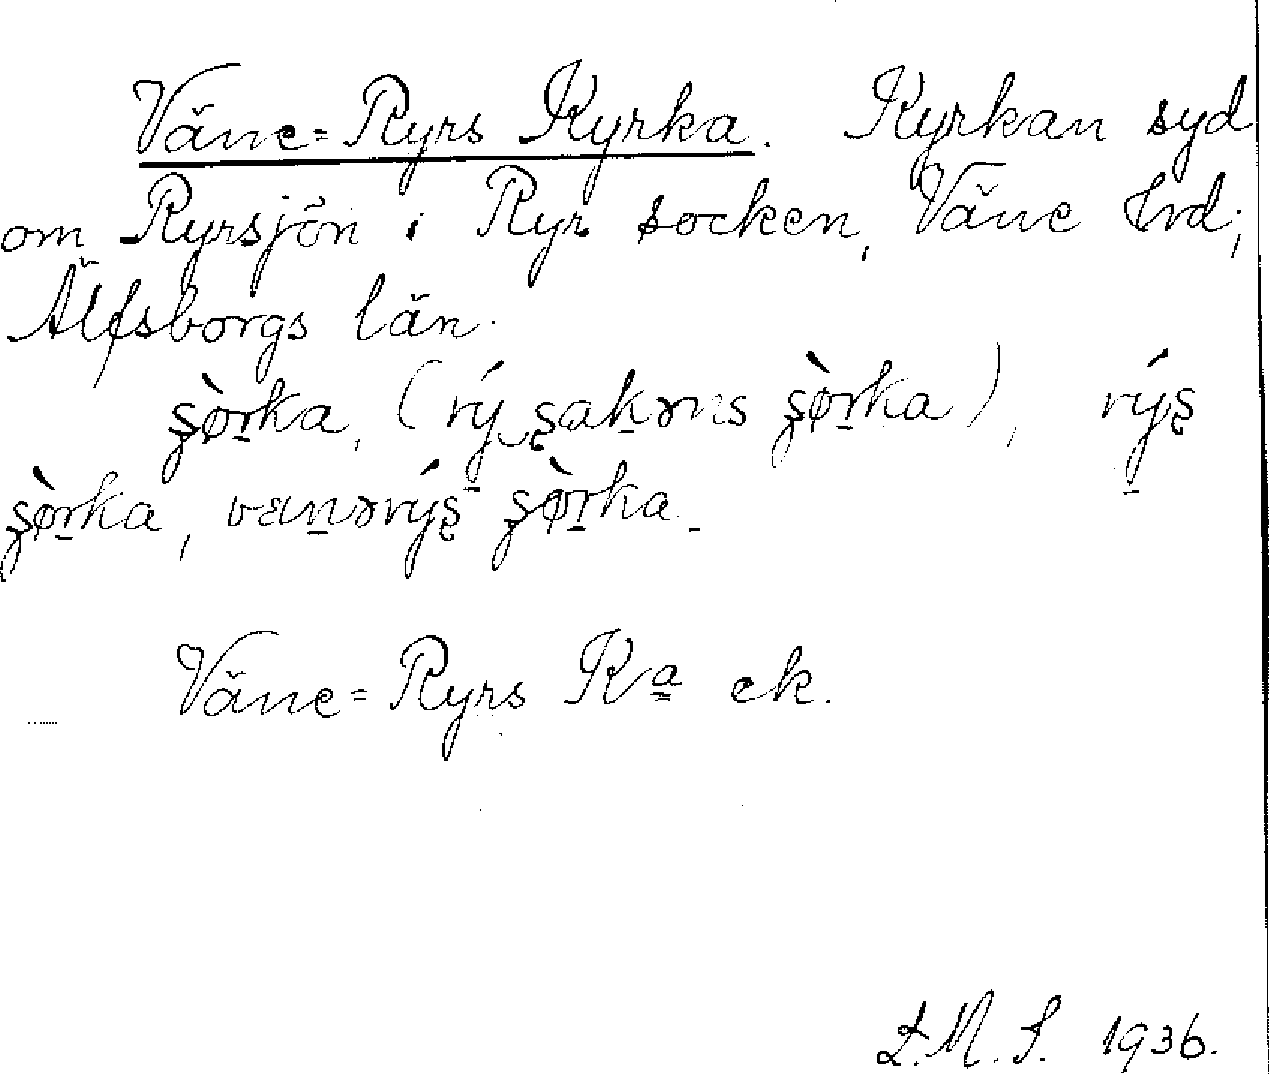 Väne=Ryrs Kyrka. Kyrkan syd
om Ryrsjön i Ryr socken, Väne hrd,
Älfsborgs län.
ʂø̀rka, (rý ʂakəns ʂø̀rka), rýʂ
ʂø̀rka, vɛnərýʂ ʂø̀rka.
Väne=Ryrs Kª ek.
L.M.S. 1936.